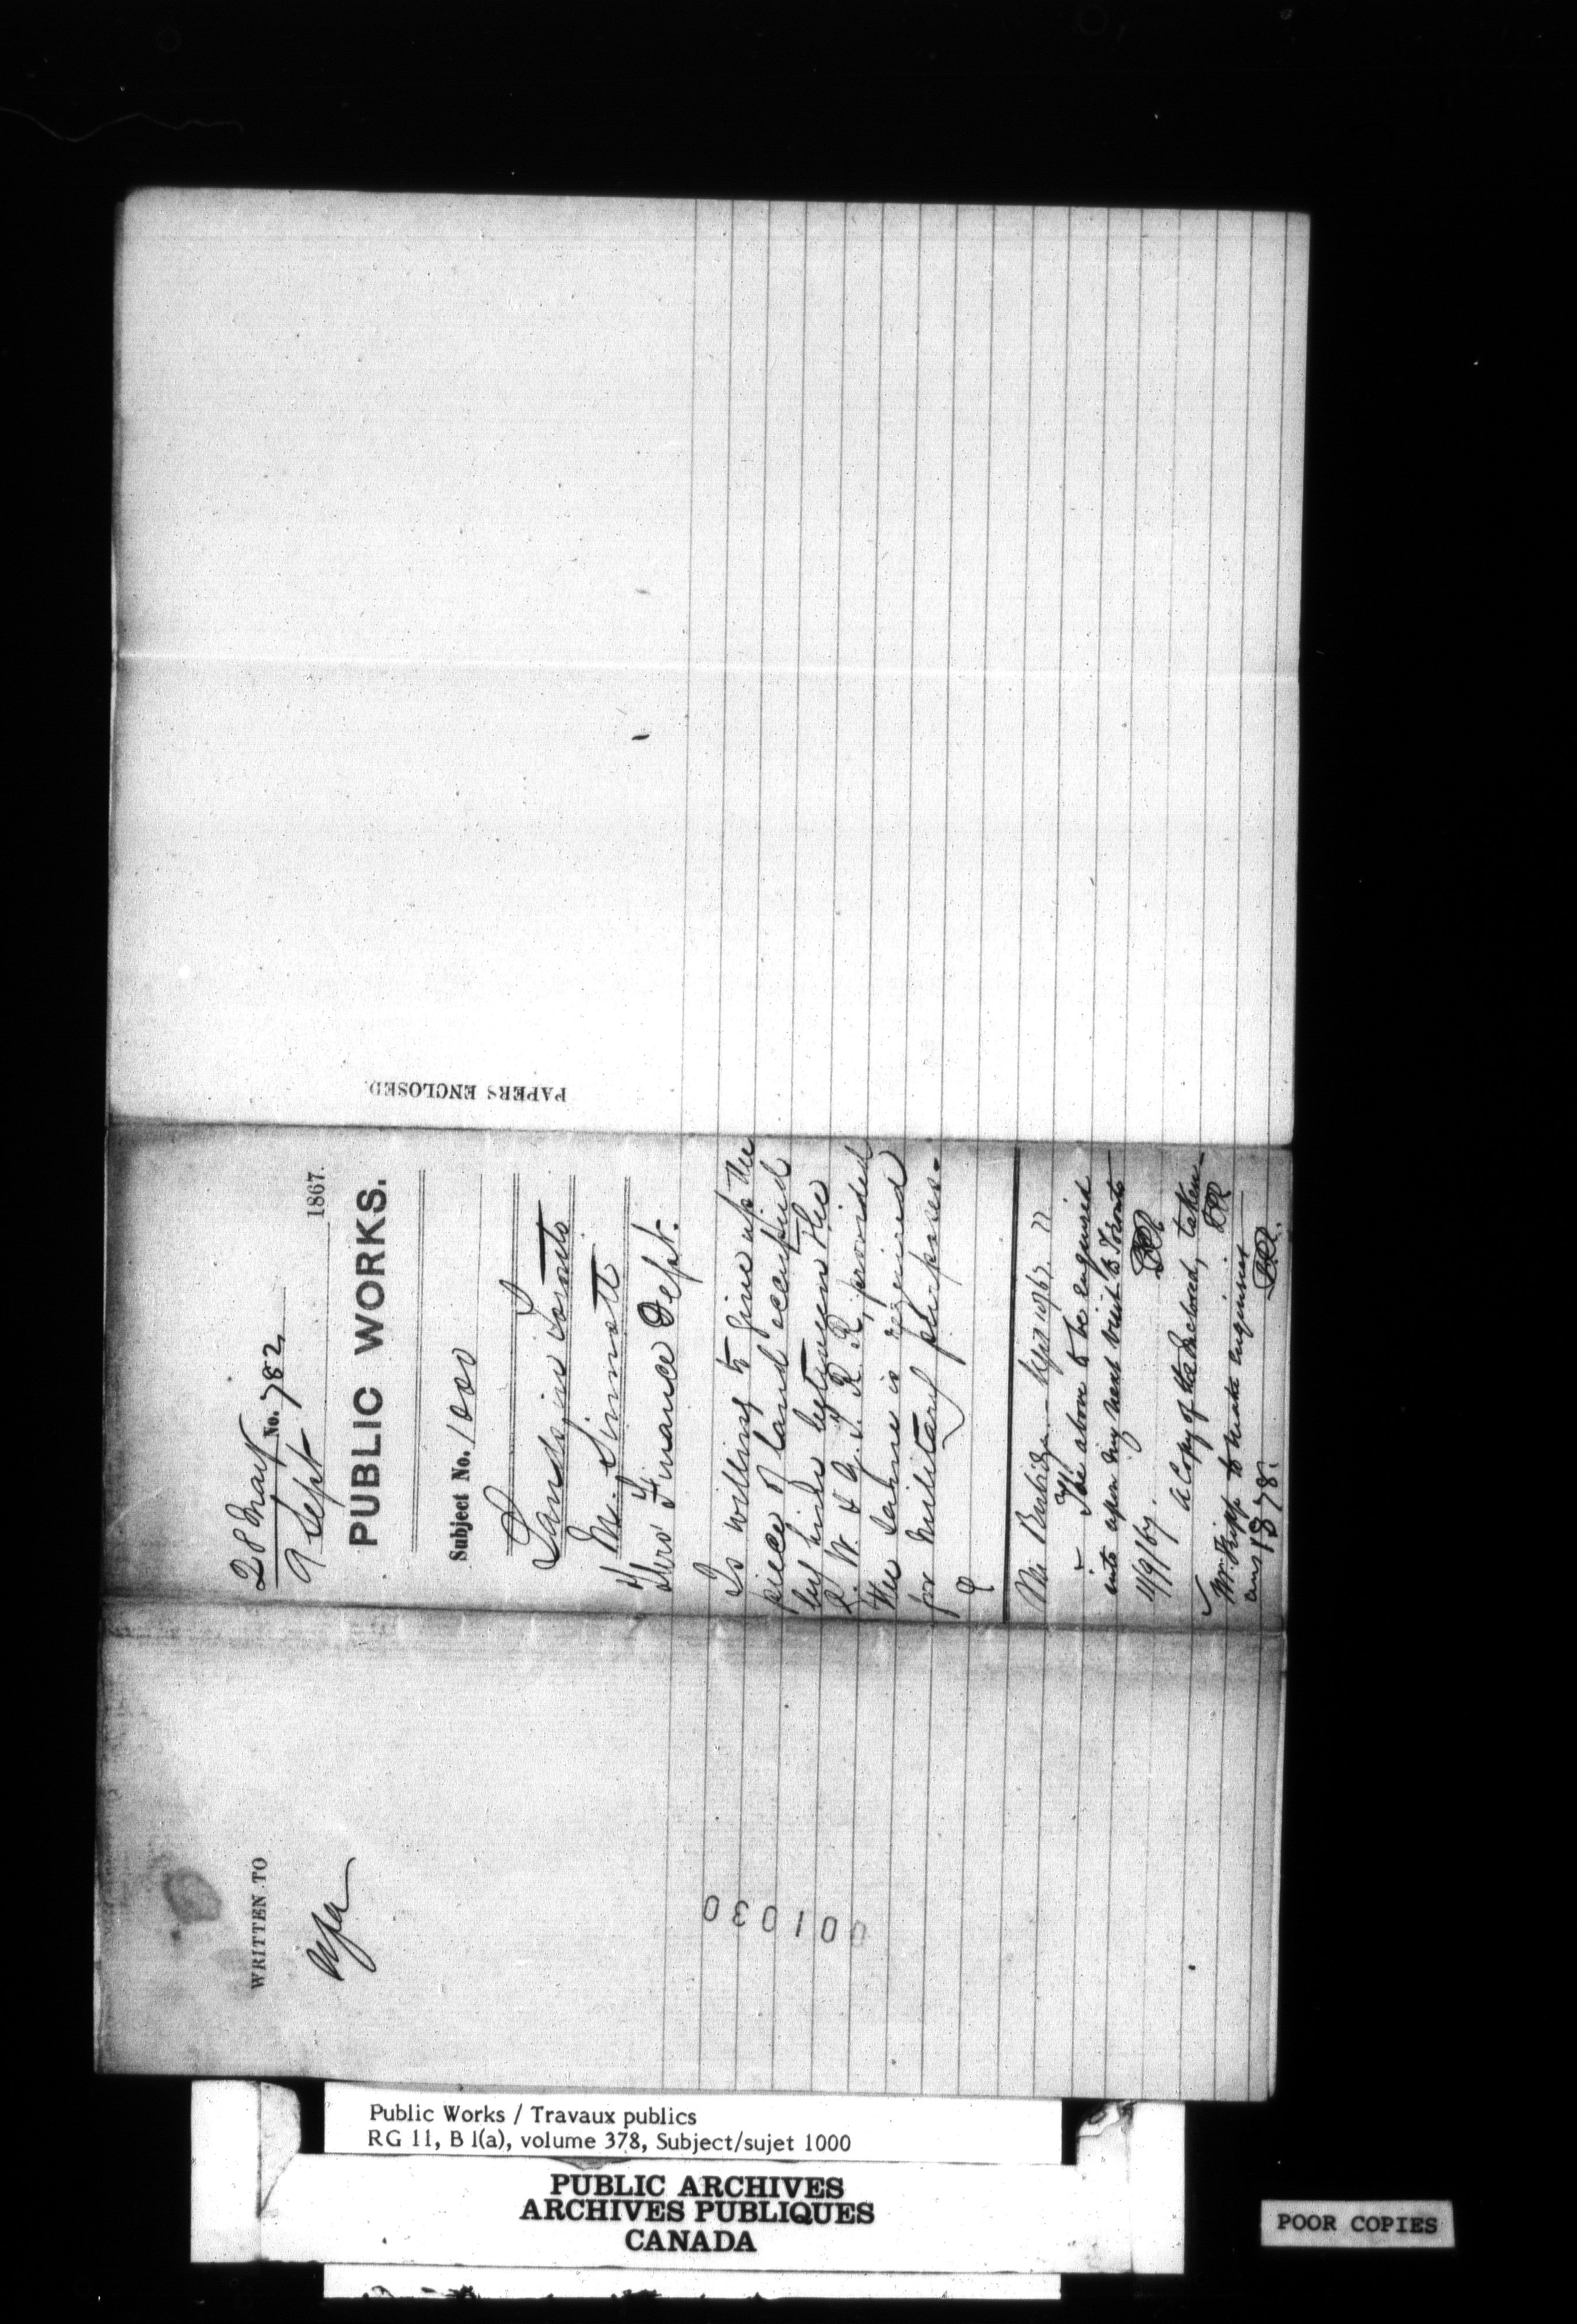 28 May
No. 782
9 Sept 1867.
PUBLIC WORKS.
Subject No. 1000
Lands in Toronto
M. Sinnott
Thro Finance Dept.
Is willing to give up the
piece of land occupied
by him between the
G. W. & G. T. R. R. provided
the same is required
for military purposes.
The above to be enquired
into upon my next visit to Toronto
11/9/67.
a Copy of the enclosed, taken
Mr. to make enquiries
ans 1878.
PAPERS ENCLOSED.
WRITTEN TO
001030
Public Works / Travaux publics
RG 11, B 1(a), volume 378, Subject/sujet 1000
PUBLIC ARCHIVES
ARCHIVES PUBLIQUES
CANADA
POOR COPIES